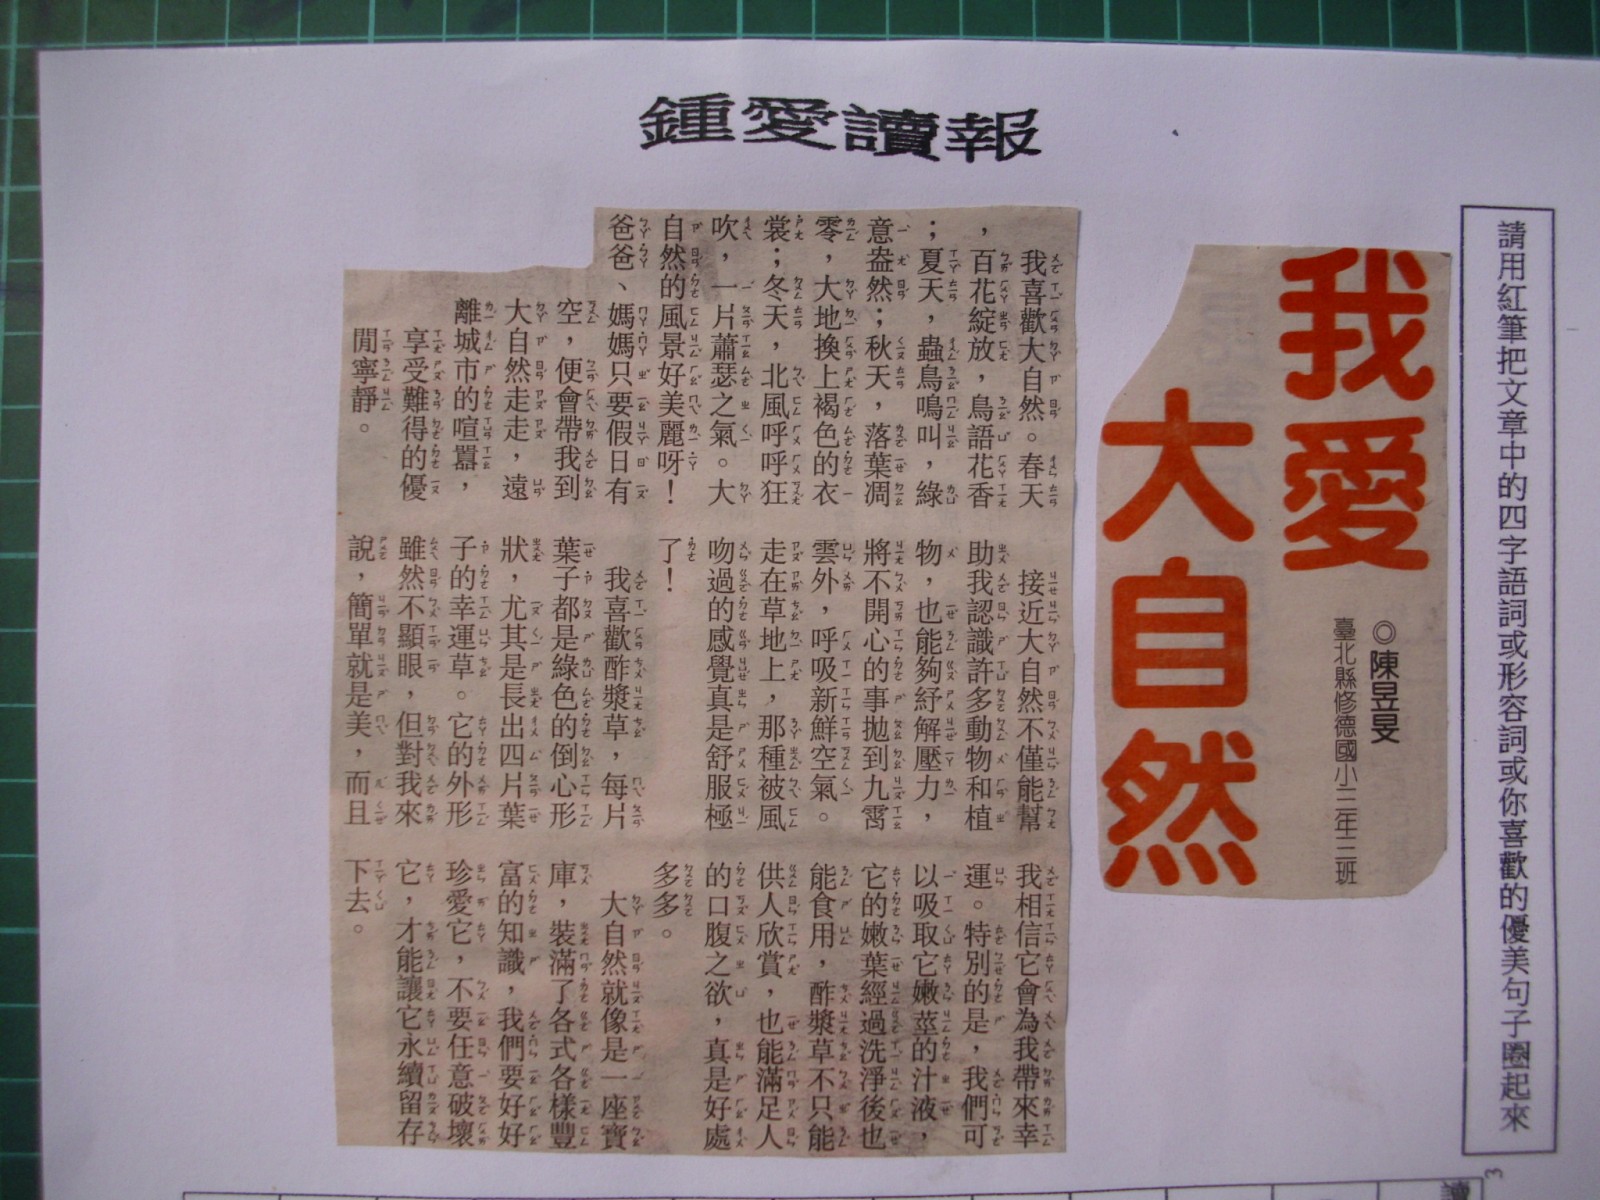 鍾愛讀報
請用紅筆把文章中的四字語詞或形容詞或你喜歡的優美句子圈起來
我愛
大自然
◎陳昱旻
臺北縣修德國小三年二班
我喜歡大自然。春天
，百花綻放，鳥語花香
；夏天，蟲鳥鳴叫，綠
意盎然；秋天，落葉凋
零，大地換上褐色的衣
裳；冬天，北風呼呼狂
吹，一片蕭瑟之氣。大
自然的風景好美麗呀！
爸爸、媽媽只要假日有
空，便會帶我到
大自然走走，遠
離城市的喧囂，
享受難得的優
閒寧靜。
接近大自然不僅能幫
助我認識許多動物和植
物，也能夠紓解壓力，
將不開心的事拋到九霄
雲外，呼吸新鮮空氣。
走在草地上，那種被風
吻過的感覺真是舒服極
了！
我喜歡酢漿草，每片
葉子都是綠色的倒心形
狀，尤其是長出四片葉
子的幸運草。它的外形
雖然不顯眼，但對我來
說，簡單就是美，而且
我相信它會為我帶來幸
運。特別的是，我們可
以吸取它嫩莖的汁液，
它的嫩葉經過洗淨後也
能食用，酢漿草不只能
供人欣賞，也能滿足人
的口腹之欲，真是好處
多多。
大自然就像是一座寶
庫，裝滿了各式各樣豐
富的知識，我們要好好
珍愛它，不要任意破壞
它，才能讓它永續留存
下去。
3